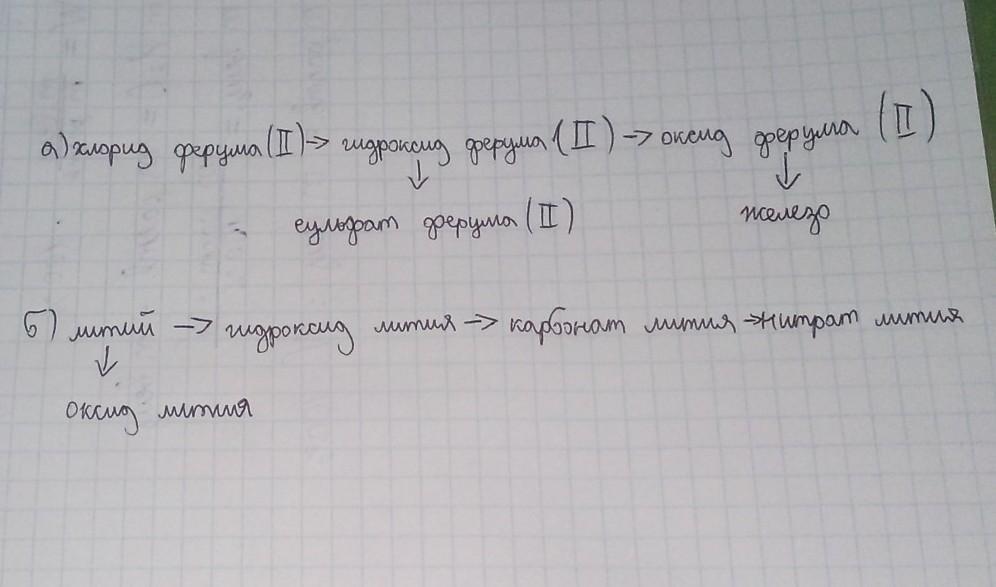 а) хлорид ферума (II) → гидроксид ферума (II) → оксид ферума (II)
↓ ↓
сульфат ферума (II) железо
б) литий → гидроксид лития → карбонат лития → нитрат лития
↓
оксид лития